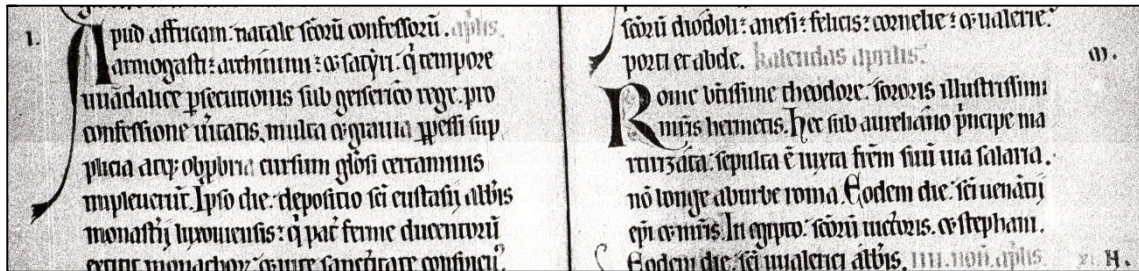 1. Apud affricam: natale scoꝝ confessoꝝ. aplis.
armogasti: archinimi: ⁊ satyri: q̇ tempore
uuādalice ꝑsecutionis sub genserico rege. pro
confessione ūitatis. multa ⁊ grauia ꝑpessi sup
plicia atqꝫ obꝓbria cursum glōsi certaminis
impleuerūt. Ipso die. depositio sc̄i eustasij abb̄is
monastij luxouiensis: q̇ pat̄ ferme ducentoꝝ
extitit monachoꝝ. ⁊ uite sanctitate
scōꝝ diodoli: anesi: felicis: cornelie: ⁊ ualerie:
porti et abde. kalendas aprilis. m.
Rome btīssime theodore. sororis illustrissimi
mīris hermetis. Hec sub aureliano p̄ncipe ma
rtirizāta. sepulta ē iuxta frēm suū uia salaria.
nō longe ab urbe roma. Eodem die. sc̄i uenātij
ep̄i ⁊ mr̄is. In egypto. scōꝝ uictoris. ⁊ stephani.
Eodem die. sc̄i ualerici abb̄is. iiii. non. aplis. xi. H.